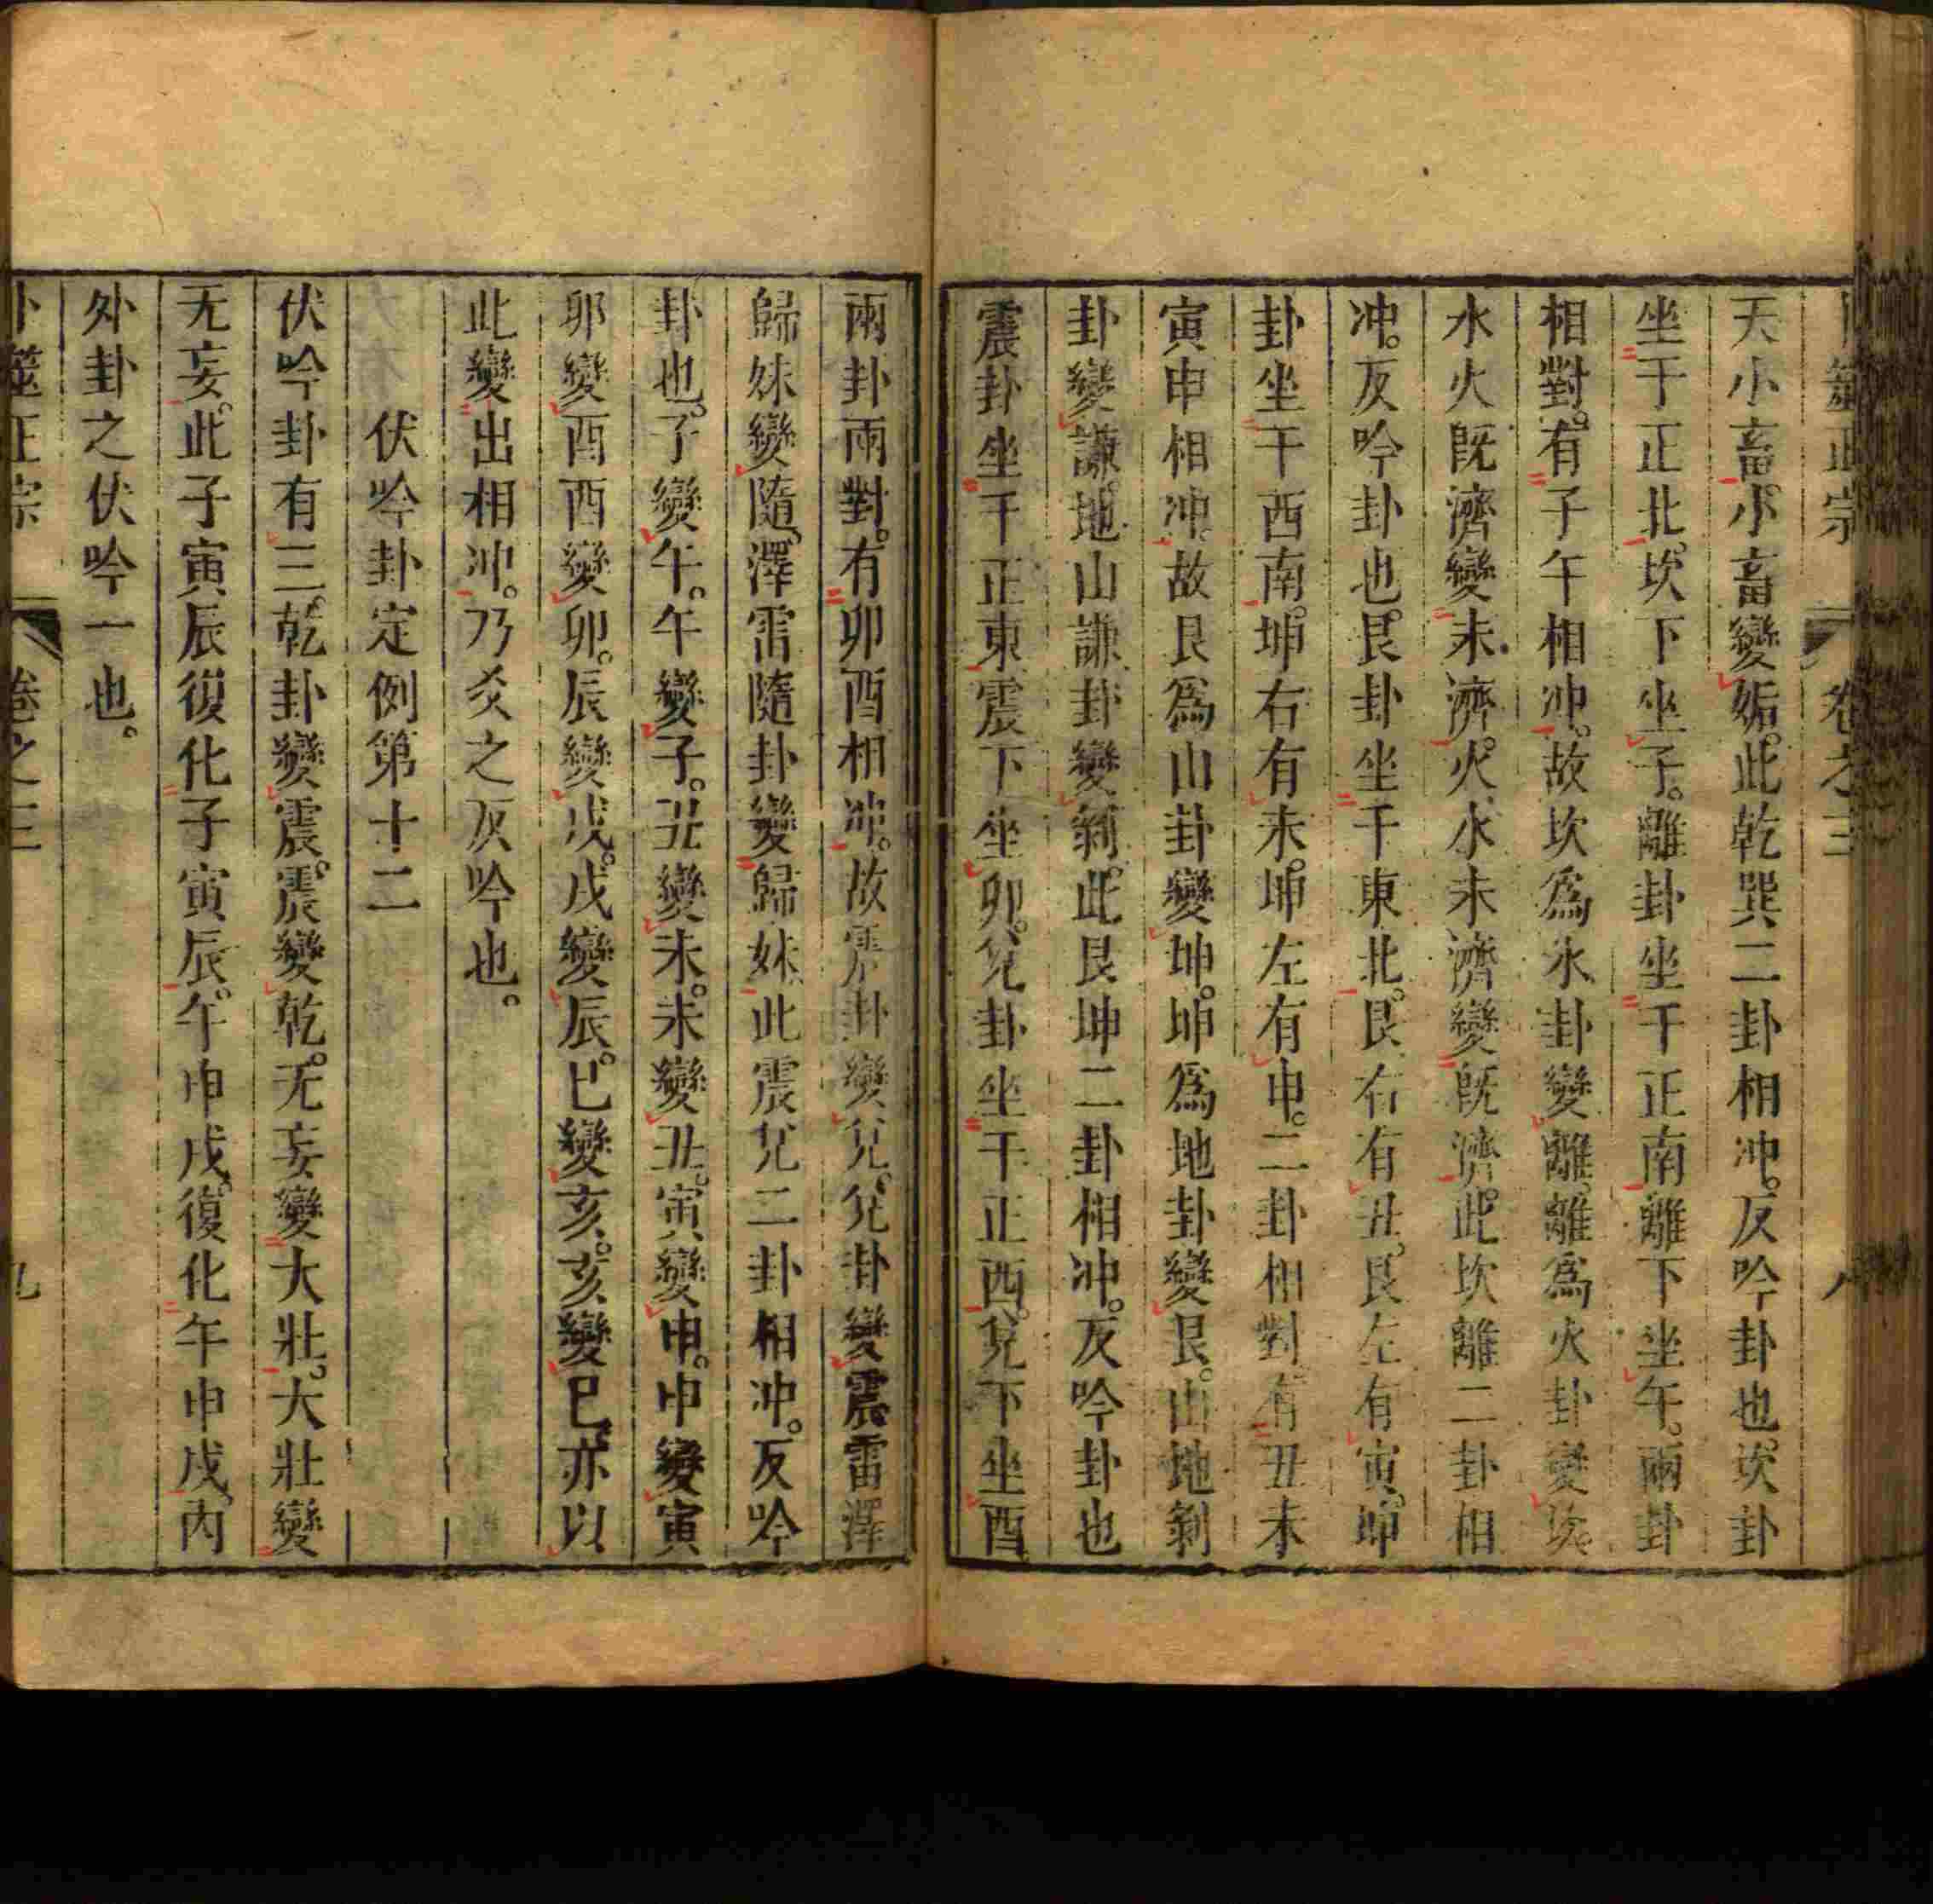 卜筮正宗 卷之三 八
天小畜。小畜變姤。此乾巽二卦相冲。反吟卦也。坎卦
坐于正北。坎下坐子。離卦坐于正南離下坐午。兩卦
相對。有子午相冲。故坎爲水卦變離。離爲火卦變坎。
水火既濟變未濟。火水未濟變既濟。此坎離二卦相
冲。反吟卦也。艮卦坐于東北。艮右有丑。艮左有寅。坤
卦坐于西南。坤右有未。坤左有申。二卦相對有丑未
寅申相冲。故艮爲山卦變坤。坤爲地卦變艮。山地剝
卦變謙。地山謙卦變剝。此艮坤二卦相冲。反吟卦也
震卦坐于正東震下坐卯。兌卦坐于正西。兌下坐酉
兩卦兩對。有卯酉相冲。故震卦變兌。兌卦變震雷澤
歸妹變隨。澤雷隨卦變歸妹。此震兌二卦相冲。反吟
卦也。子變午。午變子。丑變未。未變丑。寅變申。申變寅
卯變酉酉變卯。辰變戌。戌變辰。巳變亥。亥變巳。亦以
此變出相冲。乃爻之反吟也。
伏吟卦定例第十二
伏吟卦有三。乾卦變震。震變乾。无妄變大壯。大壯變
无妄。此子寅辰復化子寅辰。午申戌。復化午申戌。內
外卦之伏吟一也。
卜筮正宗 卷之三 九